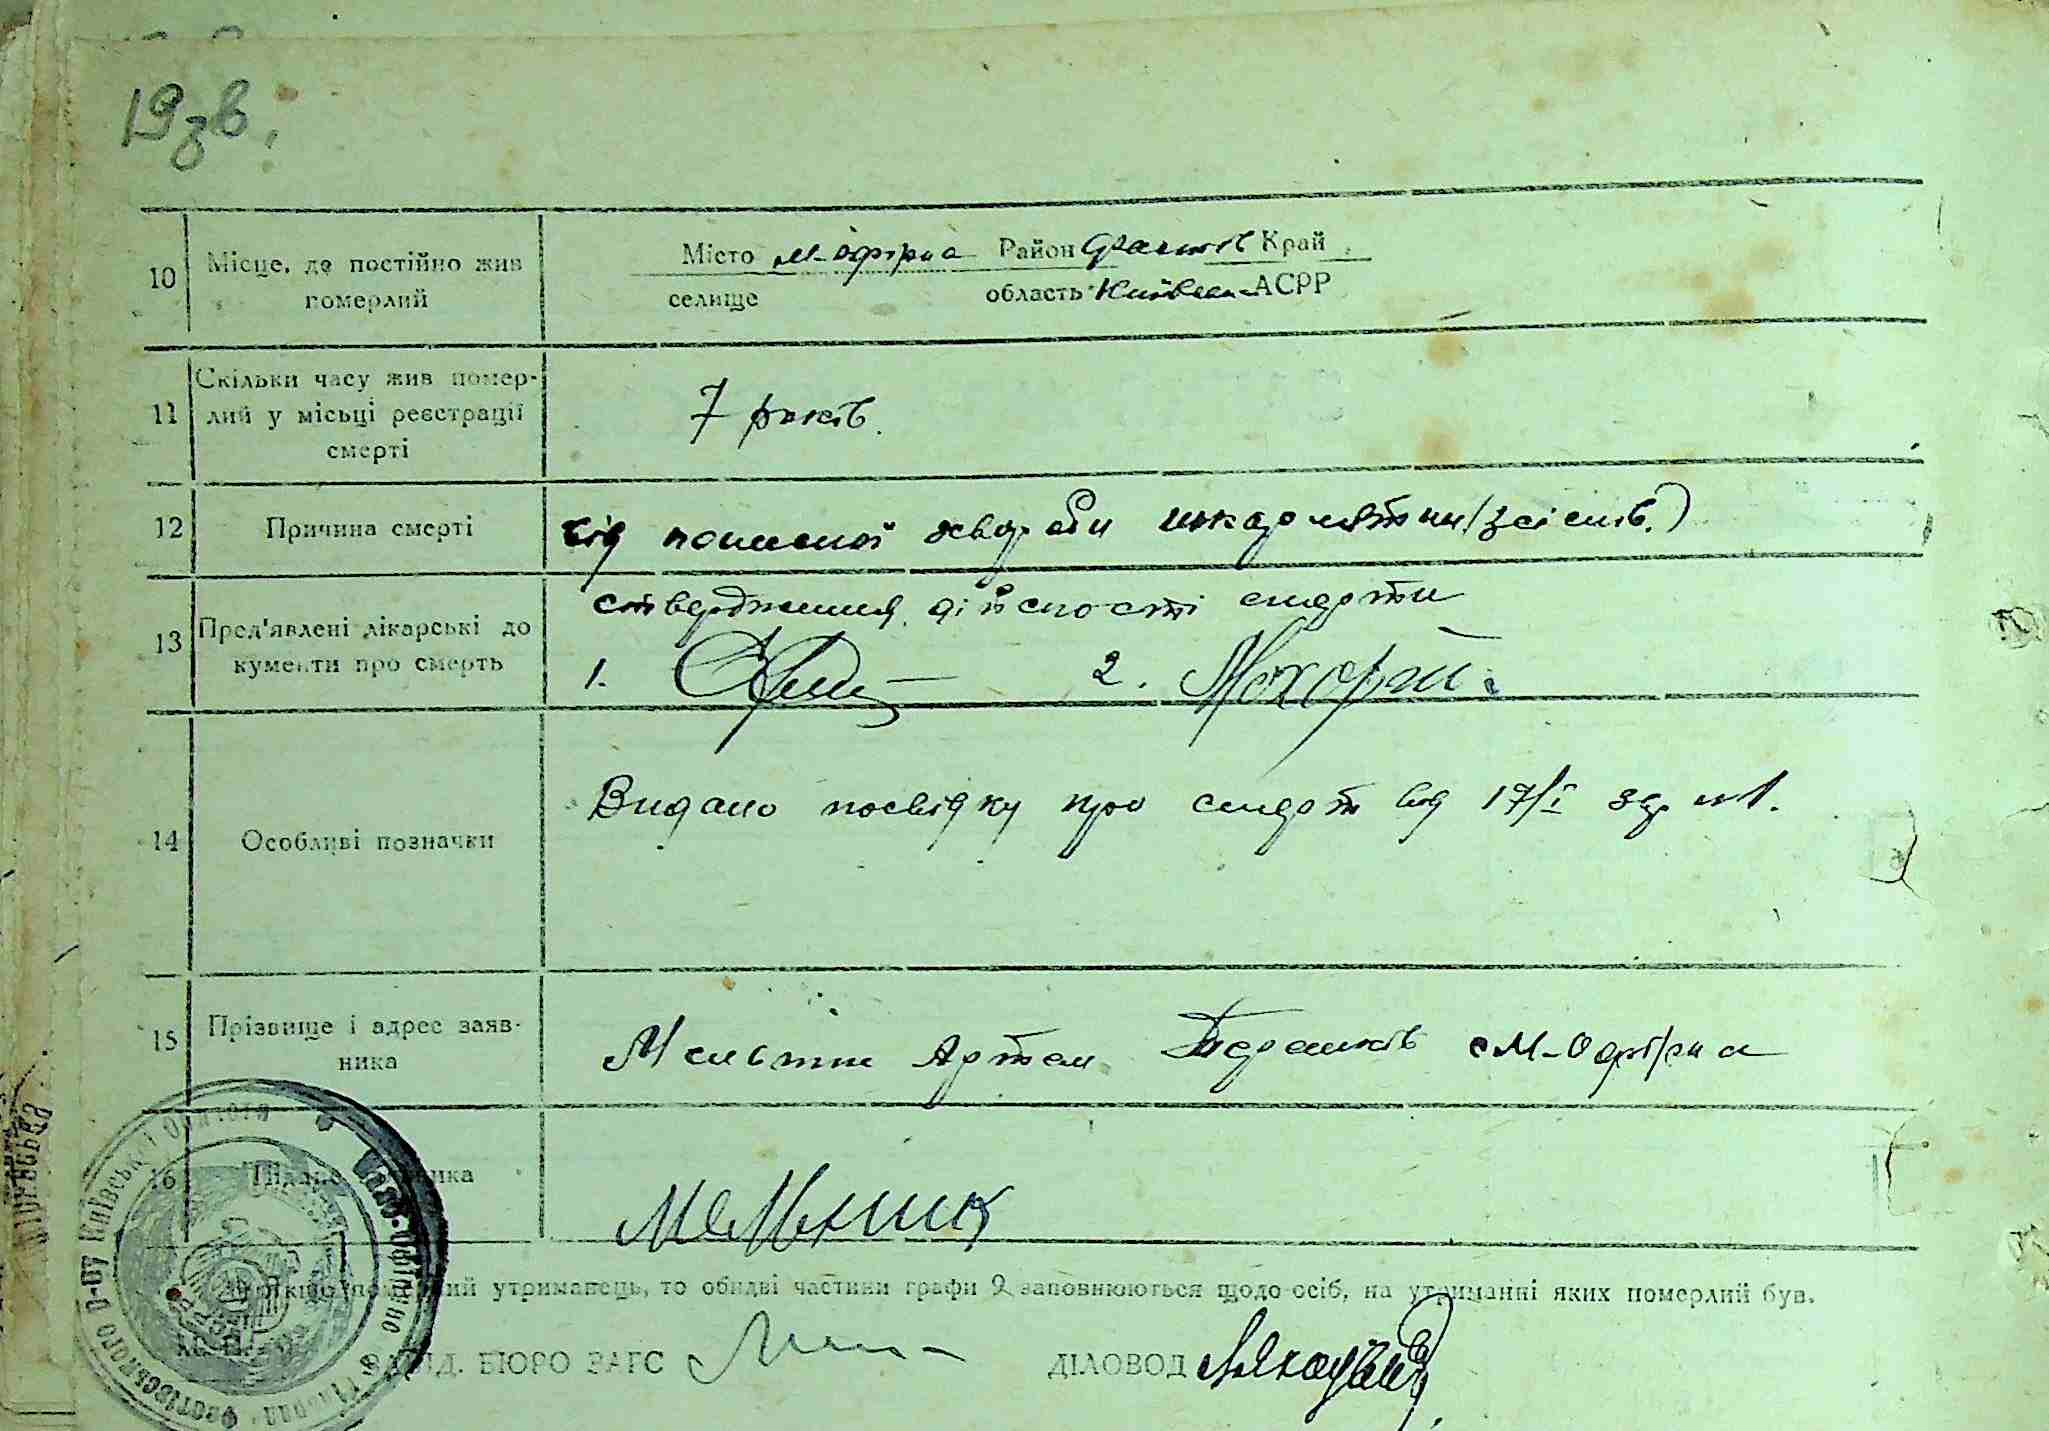 19 зв.
10 Місце, де постійно жив померлий
Місто М-Офірна Район Фастів Край
селище область Київськ АСРР
11 Скільки часу жив помер-
лий у місьці реєстрації
смерті
7 років.
12 Причина смерті
від пошесної хвороби шкарлятин
13 Пред'явлені лікарські до
кументи про смерть
ствердження дійсності смерти
1. 2. Мохорт
14 Особливі позначки
Видано посвідку про смерт від 17/I
15 Прізвище і адрес заяв-
ника
Мельник Артем с М-Офірна
16
Мельник
померлий утриманець, то обидві частини графи 9 заповнюються щодо осіб, на утриманні яких померлий був.
БЮРО ЗАГС
ДІЛОВОД
Київської Области